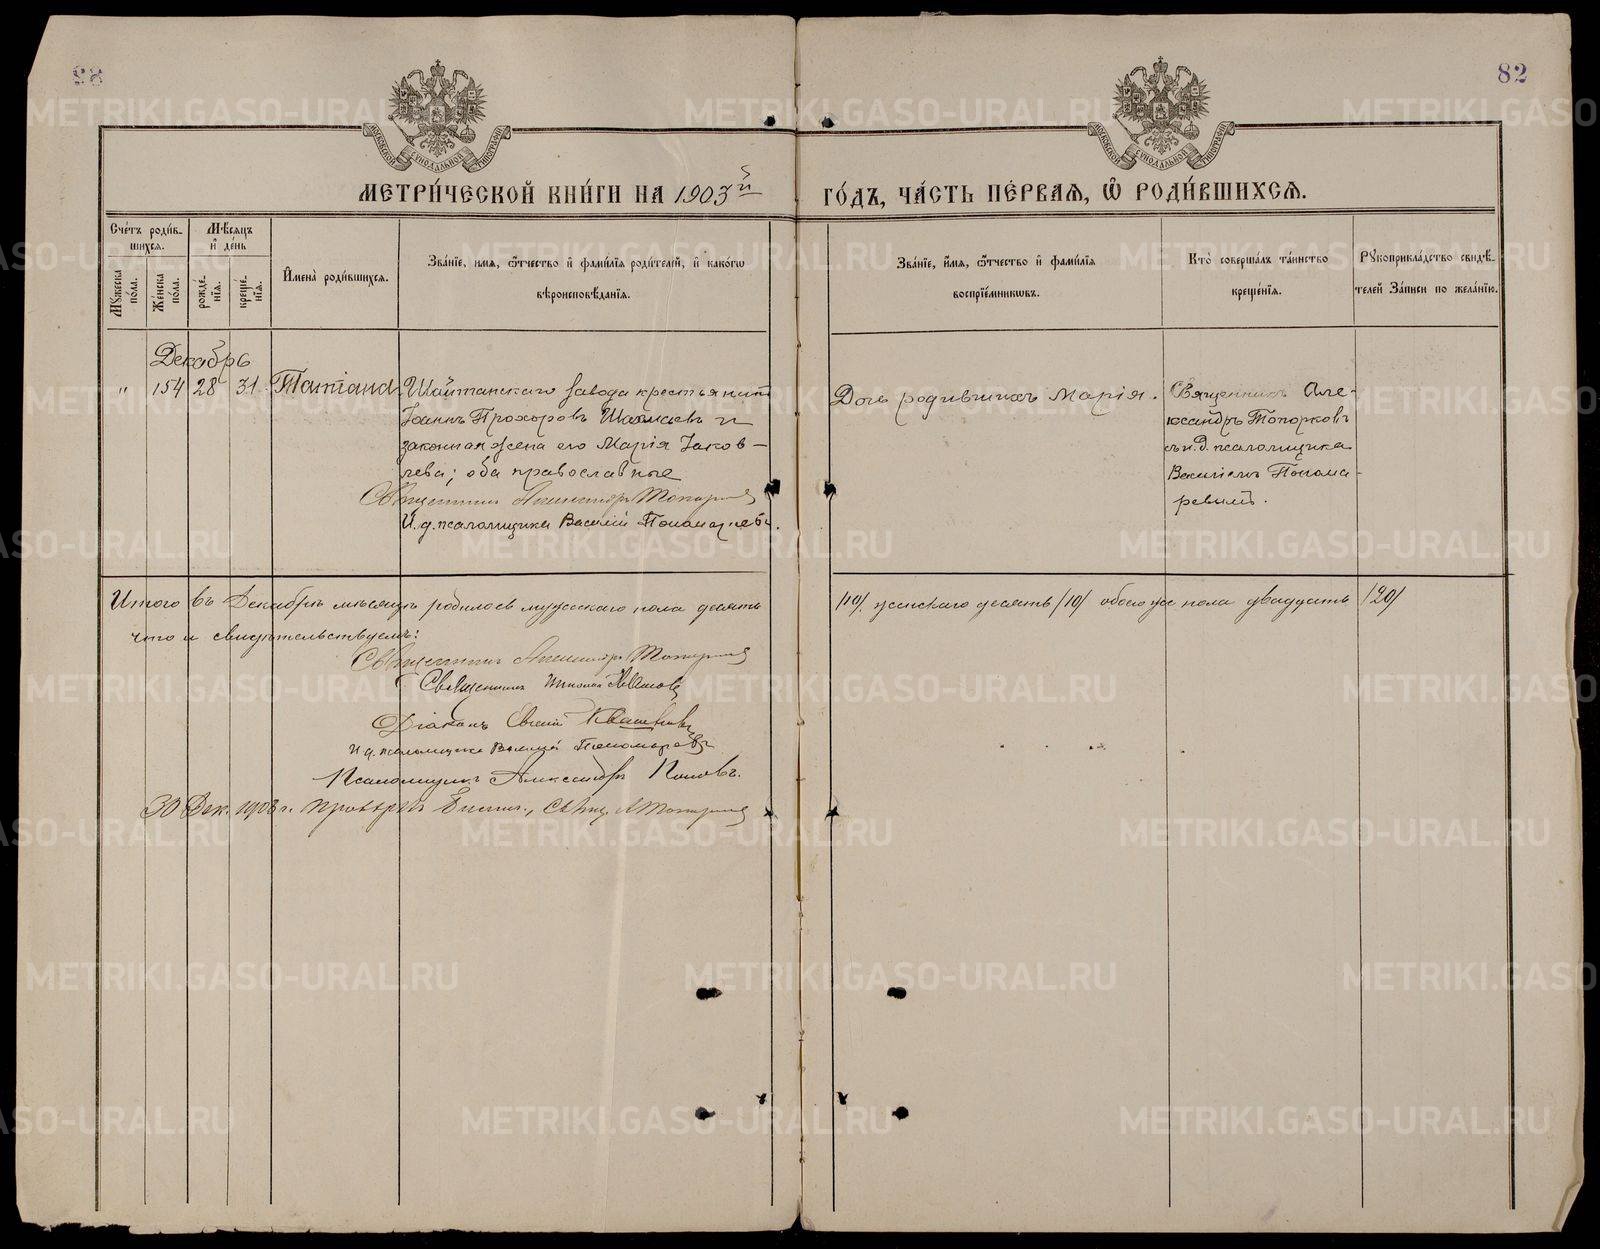 82
МЕТРИ́ЧЕСКОЙ КНИ́ГИ НА 1903й ГО́ДЪ, ЧА́СТЬ ПЕ́РВАЯ, Ѿ РОДИ́ВШИХСЯ.
МОСКОВСКОЙ СѴНОДАЛЬНОЙ ТИПОГРАФІИ
МОСКОВСКОЙ СѴНОДАЛЬНОЙ ТИПОГРАФІИ
Сче́тъ роди́в-
шихся.
Му́жеска
по́ла.
Же́нска
по́ла.
Мѣ́сяцъ
и де́нь
рожде́-
нія.
креще́-
нія.
Имена̀ роди́вшихся.
Зва́ніе, имя, ѻтчество и фами́лія роди́телей, и како́гѡ
вѣроисповѣ́данія.
Зва́ніе, и́мя, ѻтчество и фами́лія
воспріе́мниковъ.
Кто̀ соверша́лъ та́инство
креще́нія.
Рукоприкла́дство свидѣ́-
телей За́писи по жела́нію.
Декабрь
" 154 28 31 Татіана
Шайтанскаго завода крестьянинъ
Іоаннъ Прохоровъ и
законная жена его Марія Іаков-
лева; оба православные
Священникъ Александръ Топорковъ
И. д. псаломщика Василій Пономаревъ.
Дочь родившихъ Марія.
Священникъ Але-
ксандръ Топорковъ
съ и. д. псаломщика
Василіемъ Понома-
ревымъ.
Итого въ Декабрѣ мѣсяцѣ родилось мужескаго пола десять /10/, женскаго десять /10/ обоего же пола двадцать /20/
что и свидѣтельствуемъ:
Священникъ Александръ Топорковъ
Священникъ Николай
Діаконъ
И. д. псаломщика Василій Пономаревъ
Псаломщикъ Александръ Поповъ.
30 Дек. 1903 г. Свящ. А Топорковъ
METRIKI.GASO-URAL.RU